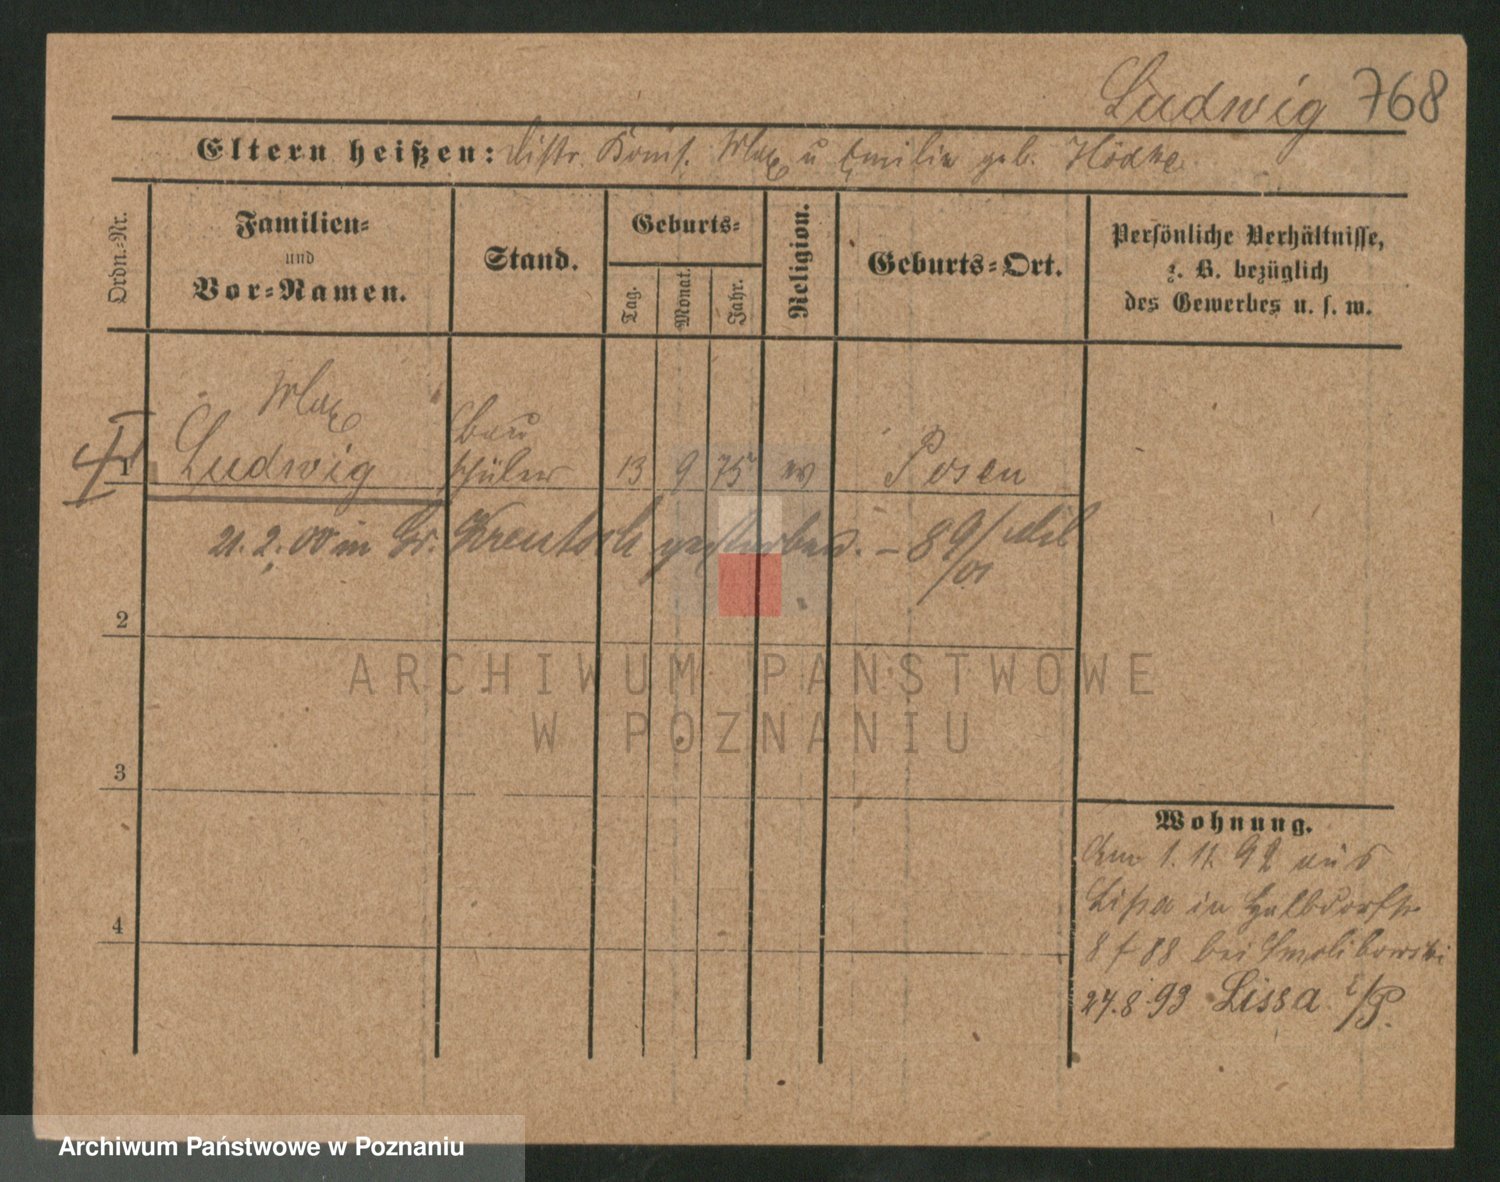 Ludwig 768
Eltern heißen: Distr. Koms. Max u Emilie geb. Hödke
Ordn.-Nr.
Familien-
und
Vor-Namen.
Stand.
Geburts-
Tag.
Monat.
Jahr.
Religion.
Geburts-Ort.
Persönliche Verhältnisse,
z. B. bezüglich
des Gewerbes u. s. w.
Max
Bau
1 Ludwig schüler 13 9 75 ev Posen
21.2.00 in Gr. Kreutsch gestorben. – 89/01 Mil
2
3
4
Wohnung.
Am 1.11.92 aus
Lissa in Halbdorfstr
8 f 88 bei Smolibowski
27.8.93 Lissa i/P.
ARCHIWUM PAŃSTWOWE
W POZNANIU
Archiwum Państwowe w Poznaniu